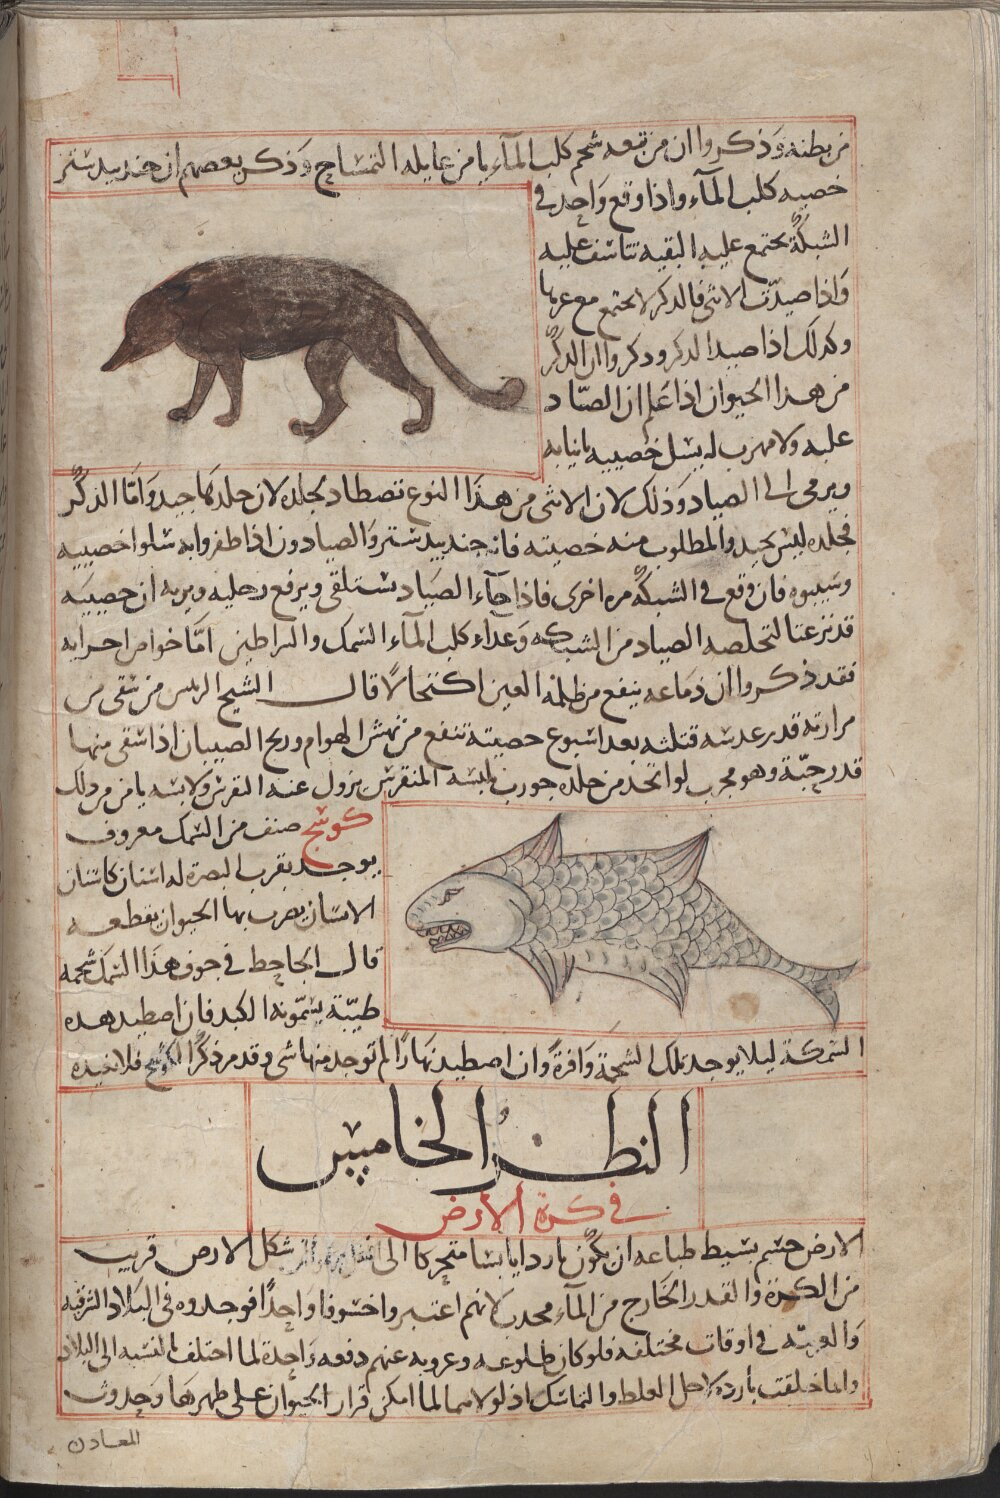 من بطنه وذكروا ان من تبعه شحم كلب الماء يامن غايلة التمساح وذكر بعضهم ان جندبيدستر
خصيه كلب الماء واذا وقع واحد في
الشبكة يجتمع عليه البقيه تتاسف عليه
واذا صيدت الانثى فالذكر لا يجتمع مع غيرها
وكذلك اذا صيد الذكر وذكروا ان الذكر
من هذا الحيوان اذا علم ان الصياد
عليه ولا مهرب له يسل خصييه بانيابه
ويرمى الى الصياد وذلك لان الانثى من هذا النوع تصطاد لجلدها لان جلدها جيد واما الذكر
فجلده ليس بجيد والمطلوب منه خصيته فانه جندبيدستر والصيادون اذا ظفروا به سلوا خصييه
وسيبوه فان وقع في الشبكة مره اخرى فاذا جآء الصياد ستلقى ويرفع رجليه ويريه ان خصييه
قد نزعتا لتخلصه الصياد من الشبكه وغداء كلب المآء السمك والسراطين اما خواص اجزايه
فقد ذكروا ان دماغه ينفع من ظلمة العين اكتحالا قال الشيخ الريس من سقى من
مرارته قدر عدسه قتلته بعد اسبوع خصيته تنفع من نهش الهوام وريح الصبيان اذا سقى منها
قدر حبة وهو مجرب لو اتخذ من جلده جورب يلبسه المنقرس يزول عنه النقرس ولابسه يامن من ذلك
كوسج صنف من السمك معروف
يوجد بقرب البصرة له اسنان كاسنان
الانسان يضرب بها الحيوان يقطعه
قال الجاحظ في جوف هذا السمك شحمه
طيبة يسمونه الكبد فان اصطيد هذه
السمكة ليلا يوجد تلك الشحمة وافرة وان اصطيد نهارا لم توجد منها شى وقد مر ذكر الكوسج فلا نعيده
النظر الخامس
في كرة الارض
الارض جسم بسيط طباعه ان يكون باردا يابسا متحركا الى شكل الارض قريب
من الكرة والقدر الخارج من المآء محدب لانهم اعتبروا خسوفا واحدا فوجدوه في البلاد الشرقيه
والغربيه في اوقات مختلفه فلو كان طلوعه وغروبه عنهم دفعه واحدة لما اختلف بالنسبه الى البلاد
وانما خلقت باردة لاجل الغلظ والتماسك اذ لولاهما لما امكن قرار الحيوان على ظهرها وحدوث
المعادن